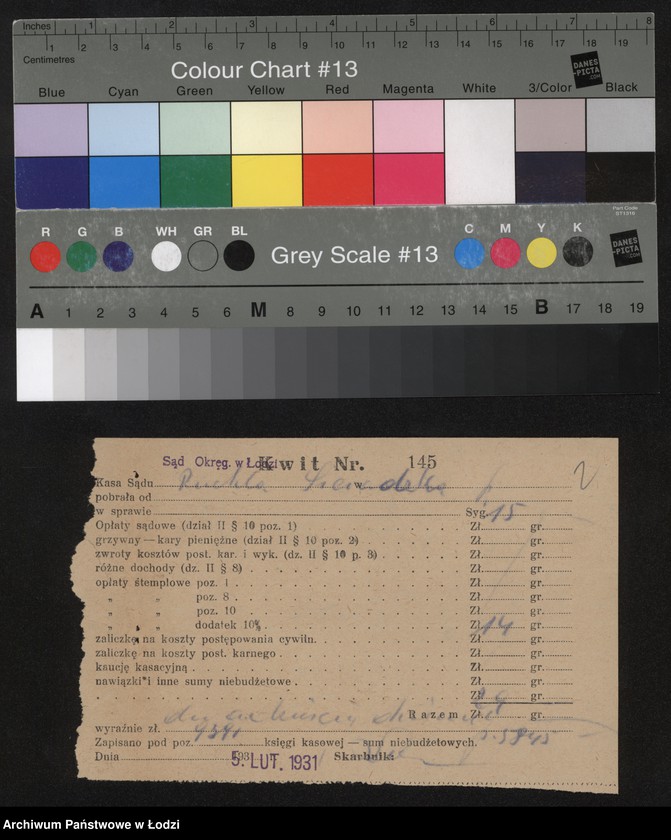 Inches 1 2 3 4 5 6 7 8
Centimetres 1 2 3 4 5 6 7 8 9 10 11 12 13 14 15 16 17 18 19
Colour Chart #13
DANES-PICTA.COM
Blue Cyan Green Yellow Red Magenta White 3/Color Black
Part Code ST1316
R G B WH GR BL Grey Scale #13 C M Y K
DANES-PICTA.COM
A 1 2 3 4 5 6 M 8 9 10 11 12 13 14 15 B 17 18 19
Sąd Okręg. w Łodzi Kwit Nr. 145
2
Kasa Sądu w
pobrała od
w sprawie Syg. 15
Opłaty sądowe (dział II § 10 poz. 1) Zł. gr.
grzywny—kary pieniężne (dział II § 10 poz. 2) Zł. gr.
zwroty kosztów post. kar. i wyk. (dz. II § 10 p. 3) Zł. gr.
różne dochody (dz. II § 8) Zł. gr.
opłaty stemplowe poz. 1 Zł. gr.
„ „ poz. 8 Zł. gr.
„ „ poz. 10 Zł. gr.
„ „ dodatek 10% Zł. 14 gr.
zaliczkę na koszty postępowania cywiln. Zł. gr.
zaliczkę na koszty post. karnego Zł. gr.
kaucję kasacyjną Zł. gr.
nawiązki i inne sumy niebudżetowe Zł. gr.
Zł. gr.
Razem Zł. gr.
wyraźnie zł.
Zapisano pod poz. księgi kasowej — sum niebudżetowych.
Dnia 5. LUT. 1931 Skarbnik
Archiwum Państwowe w Łodzi